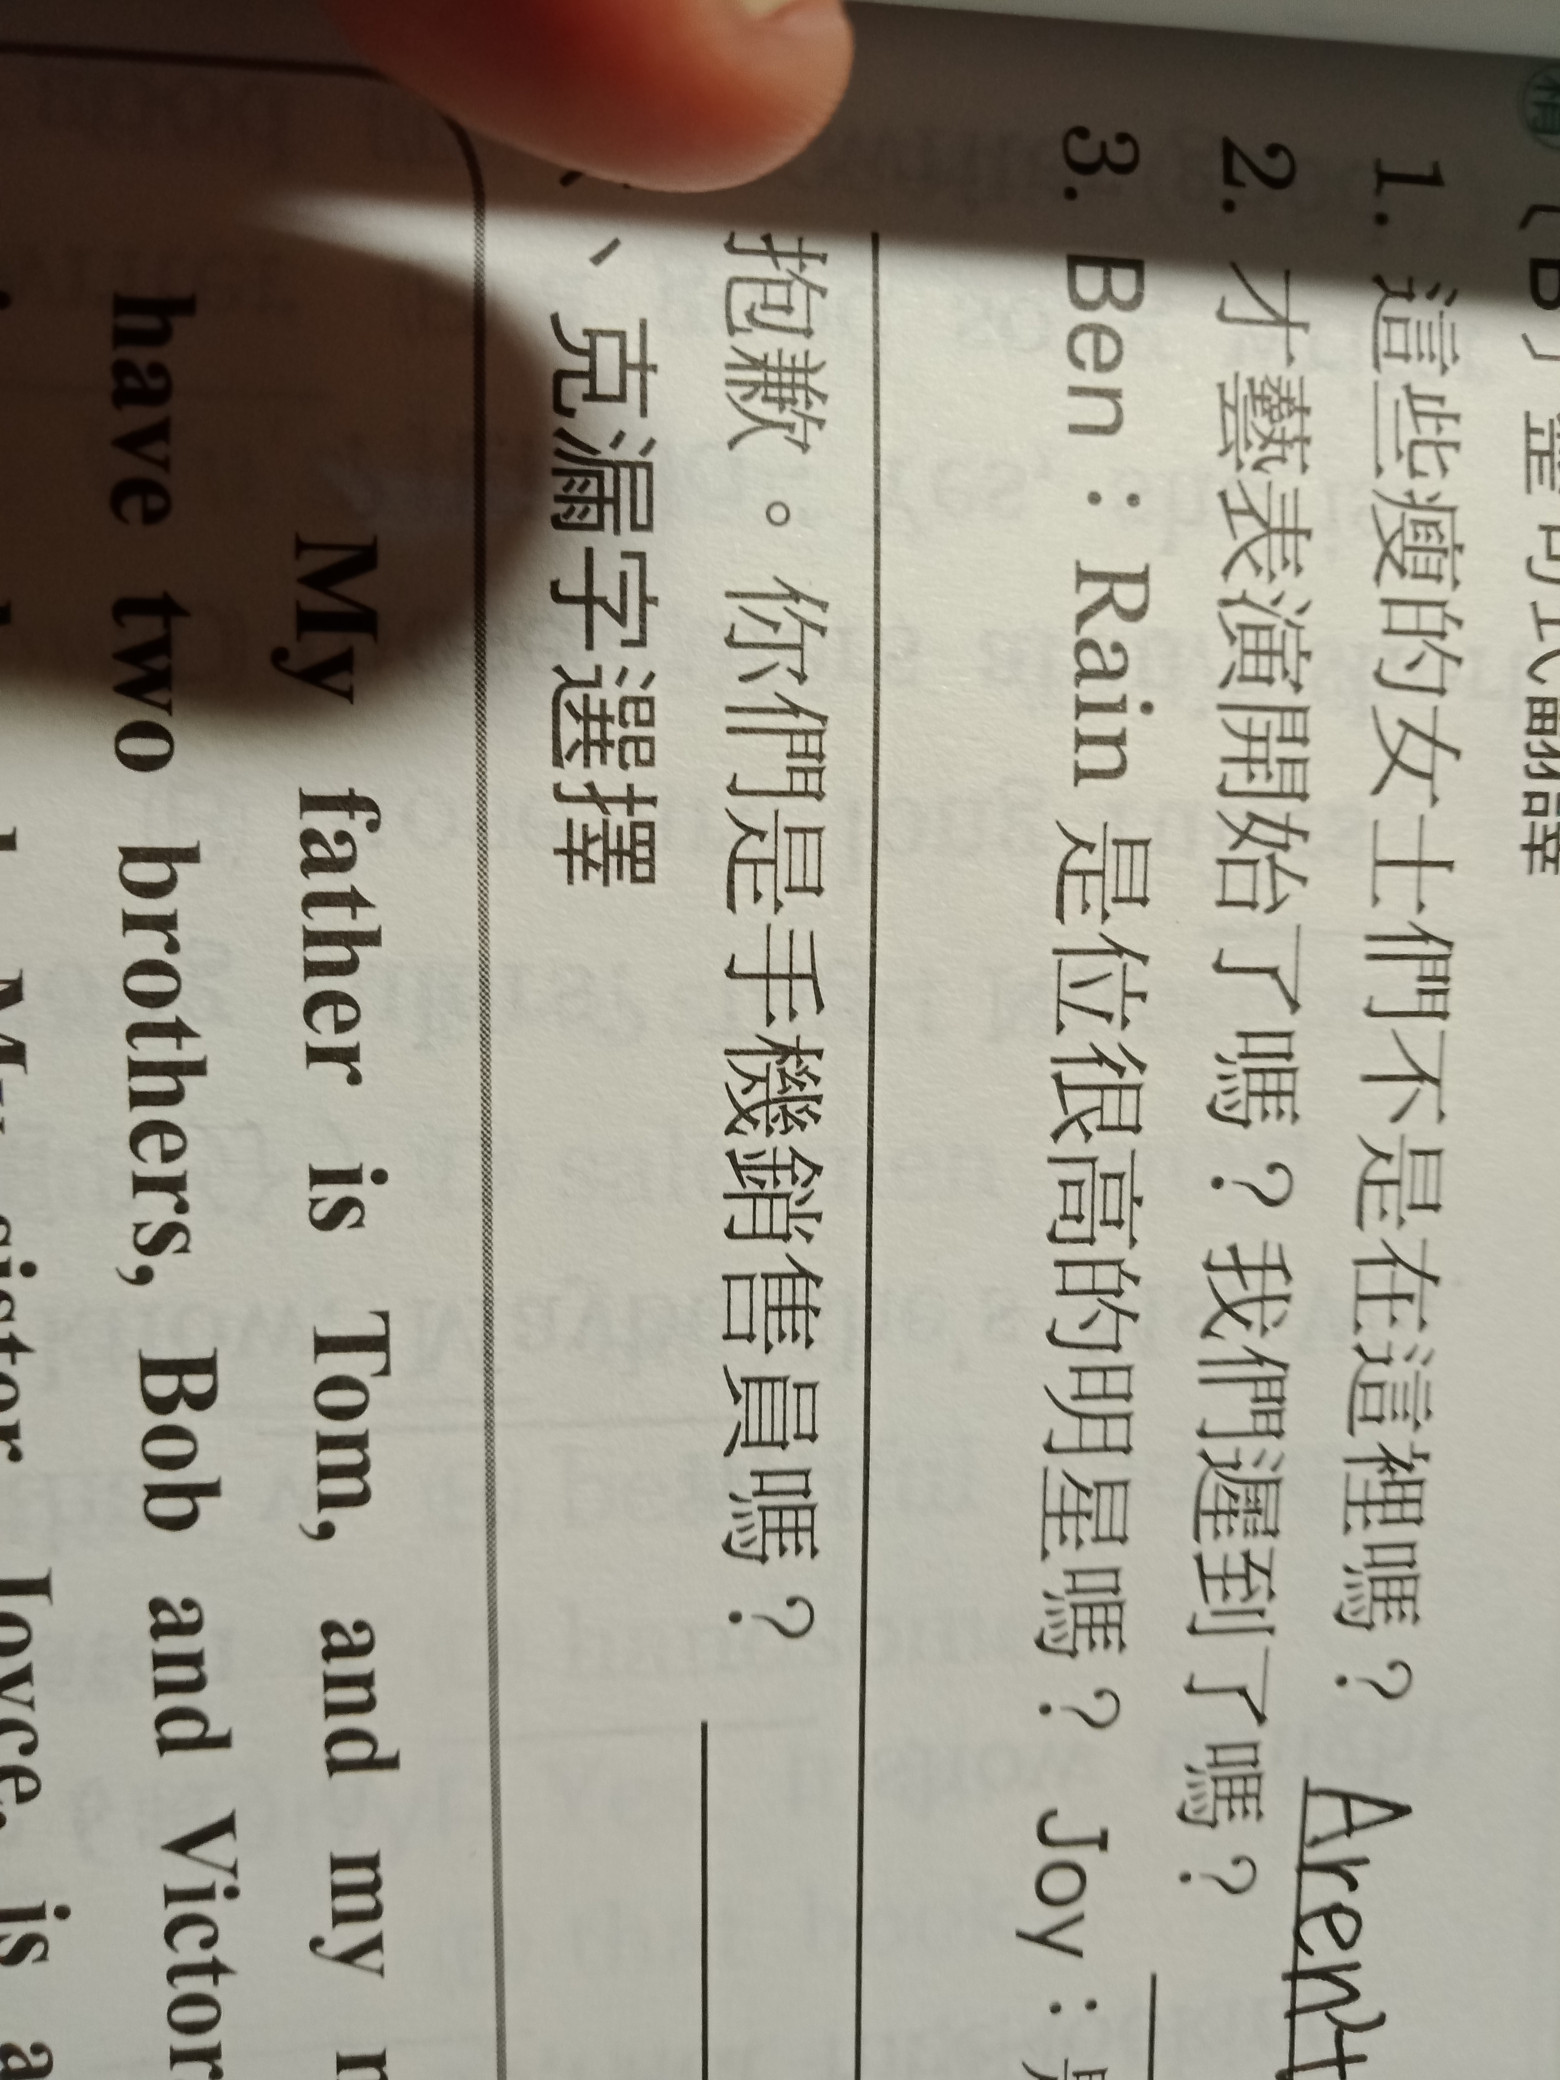 整句式翻譯
1. 這些瘦的女士們不是在這裡嗎？ Aren't
2. 才藝表演開始了嗎？我們遲到了嗎？
3. Ben：Rain 是位很高的明星嗎？ Joy：
抱歉。你們是手機銷售員嗎？
、克漏字選擇
My father is Tom, and my
have two brothers, Bob and Victor
sister, Joyce, is a